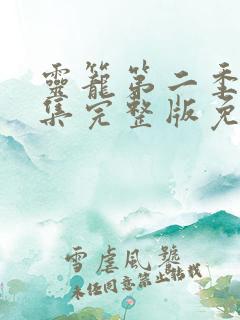 靈籠第二季
集完整版免
雪虐風號
未经同意禁止转载